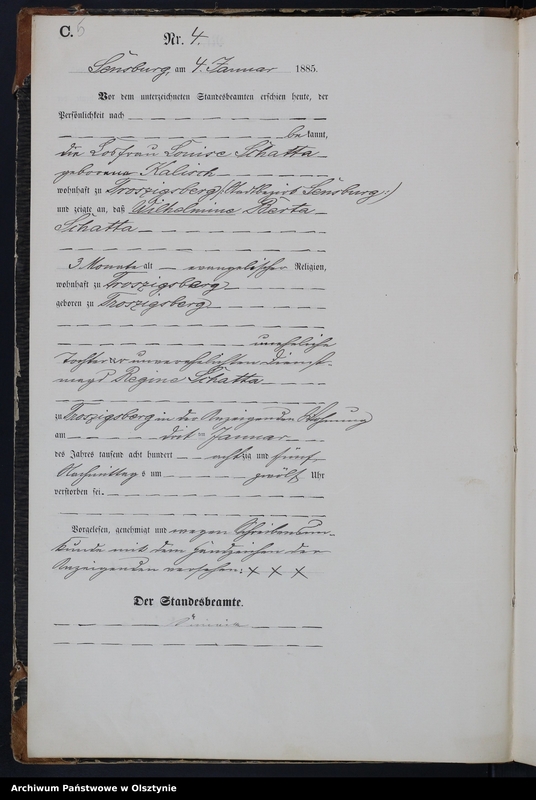 C. 6
Nr. 4.
Sensburg, am 4. Januar 1885.
Vor dem unterzeichneten Standesbeamten erschien heute, der
Persönlichkeit nach
bekannt,
die Losfrau Louise Schatta
geborene Kalisch
wohnhaft zu Troszigsberg (Stadtbezirk Sensburg:)
und zeigte an, daß Wilhelmine Berta
Schatta
3 Monate alt evangelischer Religion,
wohnhaft zu Troszigsberg
geboren zu Troszigsberg
uneheliche
Tochter der unverehelichten Dienst-
magd Regine Schatta
zu Troszigsberg in der Anzeigenden Wohnung
am drit ten Januar
des Jahres tausend acht hundert achtzig und fünf
Nachmittags um zwölf Uhr
verstorben sei.
Vorgelesen, genehmigt und wegen Schreibensun-
kunde mit dem Handzeichen der
Anzeigenden versehen: x x x
Der Standesbeamte.
Archiwum Państwowe w Olsztynie